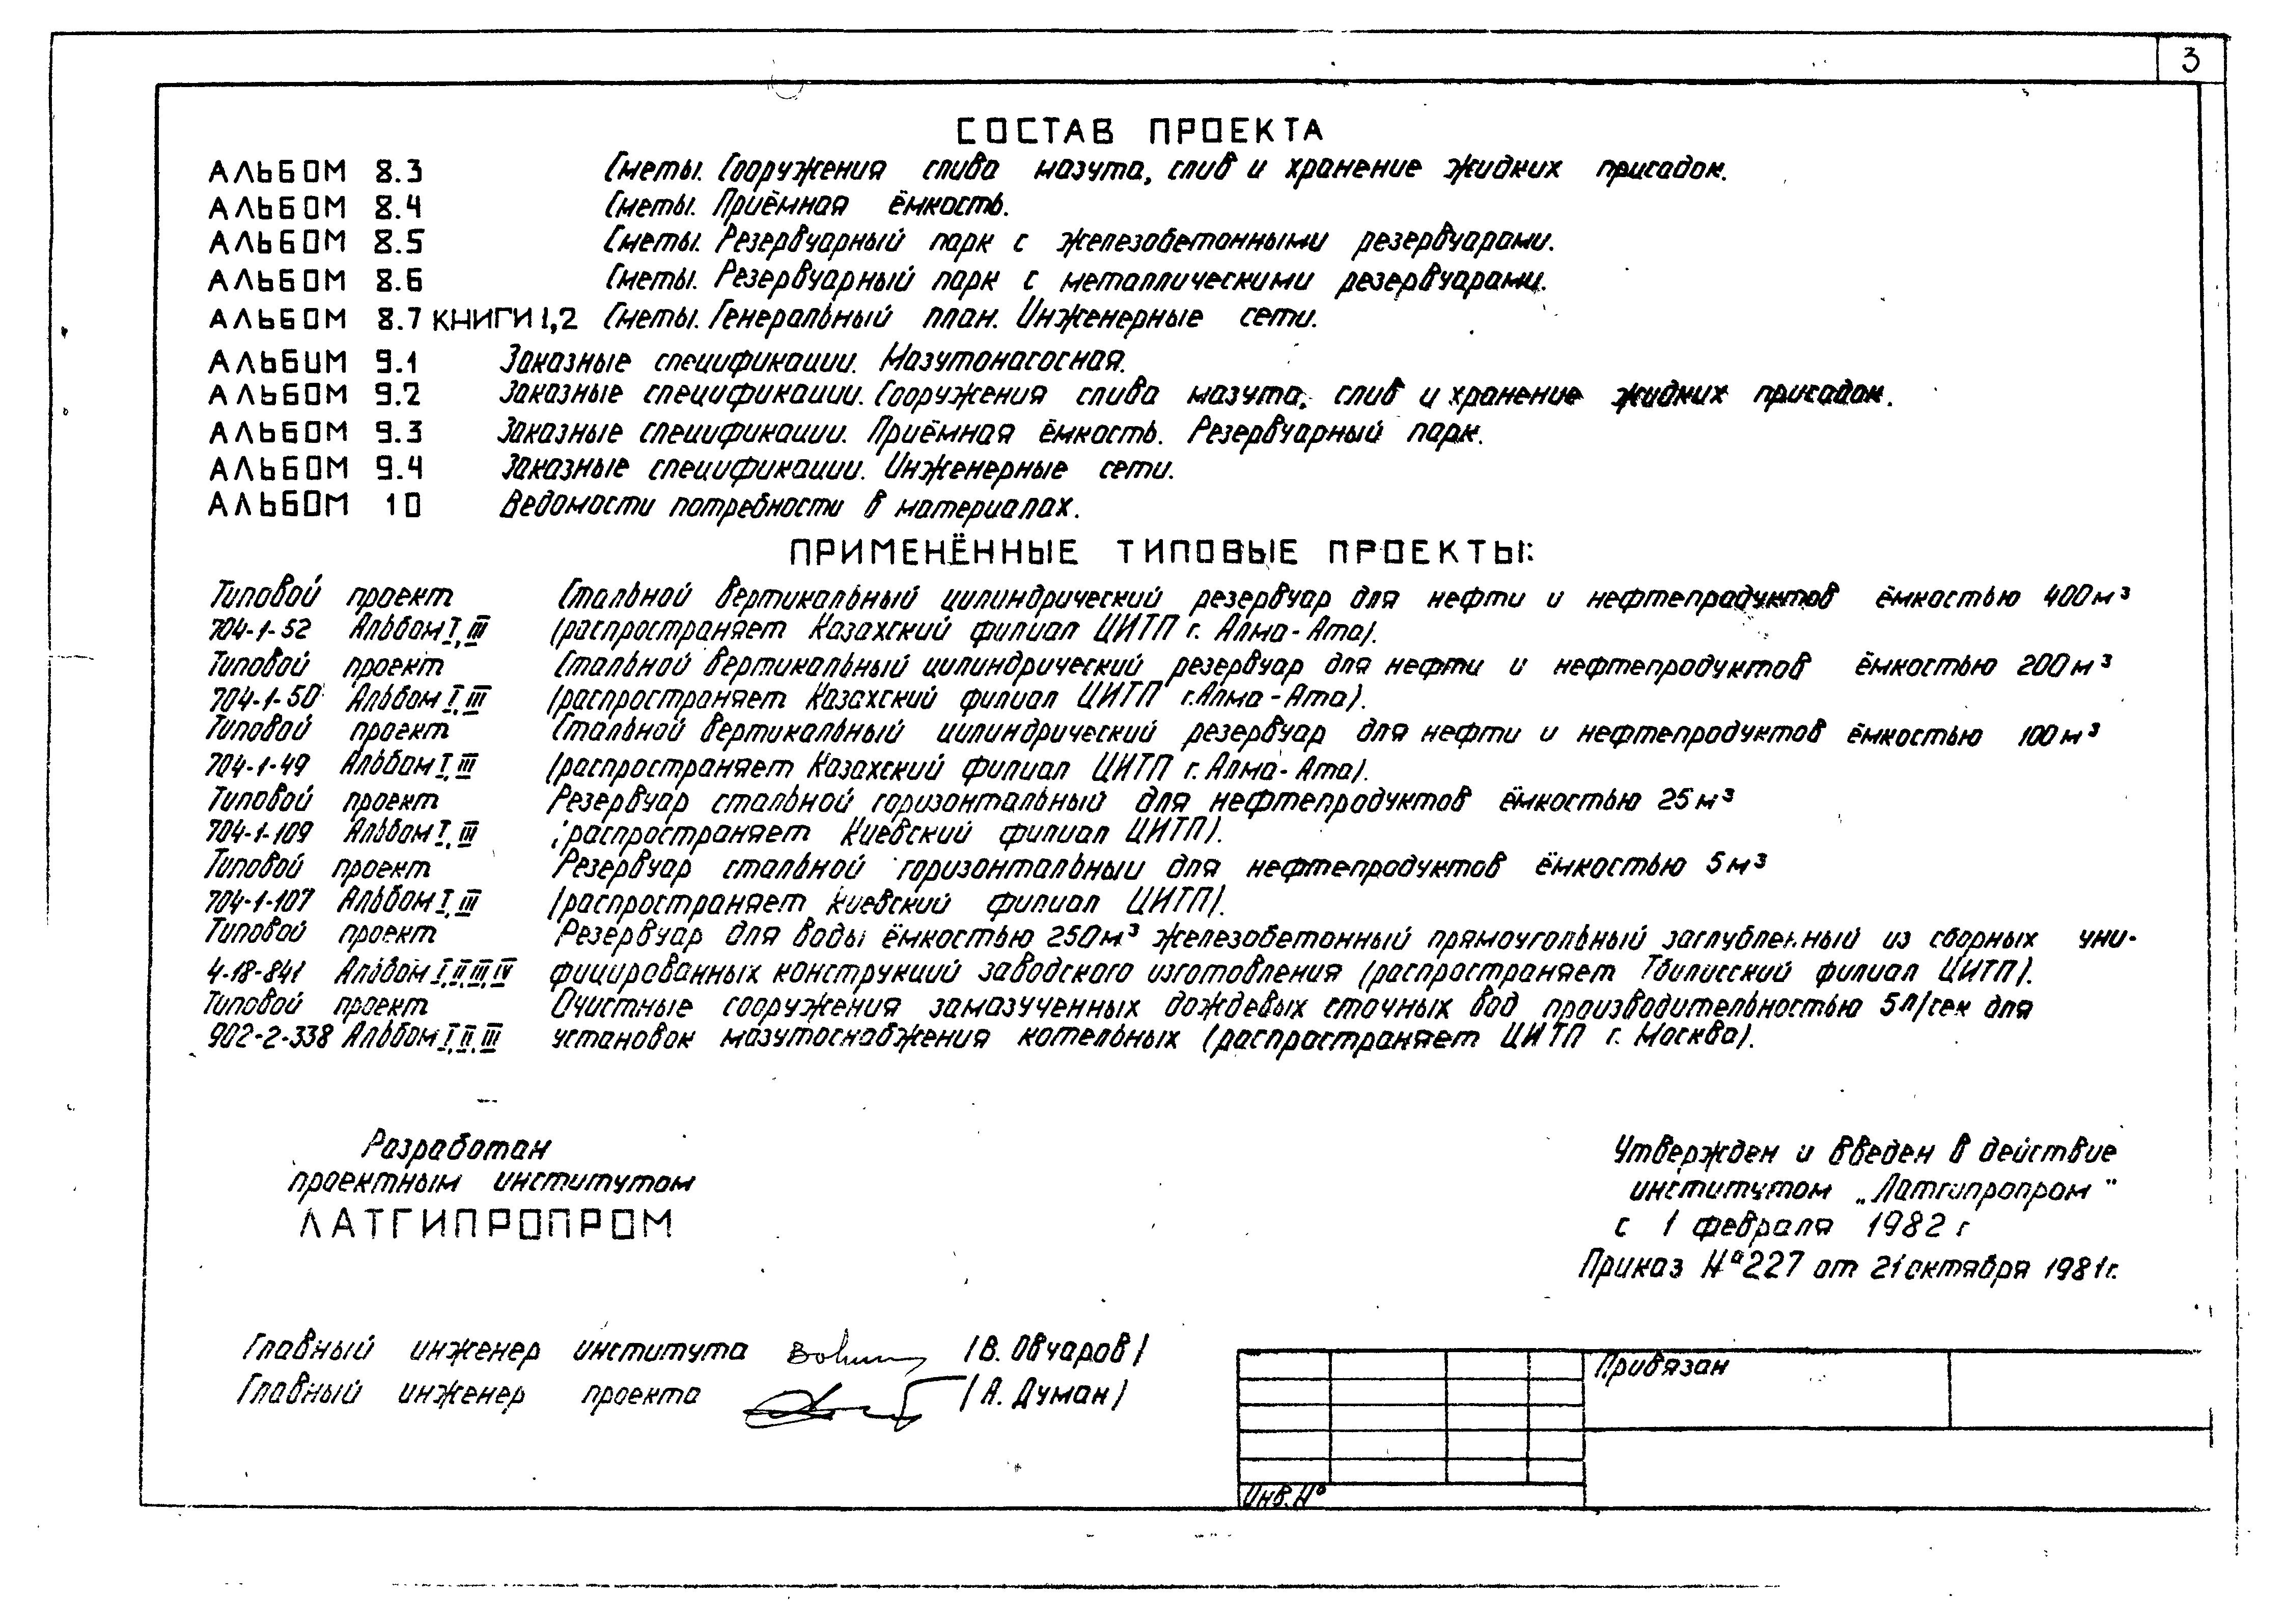 3
СОСТАВ ПРОЕКТА
АЛЬБОМ 8.3 Сметы. Сооружения слива мазута, слив и хранение жидких присадок.
АЛЬБОМ 8.4 Сметы. Приёмная ёмкость.
АЛЬБОМ 8.5 Сметы. Резервуарный парк с железобетонными резервуарами.
АЛЬБОМ 8.6 Сметы. Резервуарный парк с металлическими резервуарами.
АЛЬБОМ 8.7 КНИГИ 1,2 Сметы. Генеральный план. Инженерные сети.
АЛЬБОМ 9.1 Заказные спецификации. Мазутонасосная.
АЛЬБОМ 9.2 Заказные спецификации. Сооружения слива мазута, слив и хранение жидких присадок.
АЛЬБОМ 9.3 Заказные спецификации. Приёмная ёмкость. Резервуарный парк.
АЛЬБОМ 9.4 Заказные спецификации. Инженерные сети.
АЛЬБОМ 10 Ведомости потребности в материалах.
ПРИМЕНЁННЫЕ ТИПОВЫЕ ПРОЕКТЫ:
Типовой проект Стальной вертикальный цилиндрический резервуар для нефти и нефтепродуктов ёмкостью 400м³
704-1-52 Альбом I, III (распространяет Казахский филиал ЦИТП г. Алма-Ата).
Типовой проект Стальной вертикальный цилиндрический резервуар для нефти и нефтепродуктов ёмкостью 200м³
704-1-50 Альбом I, III (распространяет Казахский филиал ЦИТП г. Алма-Ата).
Типовой проект Стальной вертикальный цилиндрический резервуар для нефти и нефтепродуктов ёмкостью 100м³
704-1-49 Альбом I, III (распространяет Казахский филиал ЦИТП г. Алма-Ата).
Типовой проект Резервуар стальной горизонтальный для нефтепродуктов ёмкостью 25м³
704-1-109 Альбом I, III (распространяет Киевский филиал ЦИТП).
Типовой проект Резервуар стальной горизонтальный для нефтепродуктов ёмкостью 5м³
704-1-107 Альбом I, III (распространяет Киевский филиал ЦИТП).
Типовой проект Резервуар для воды ёмкостью 250м³ железобетонный прямоугольный заглубленный из сборных уни-
4-18-841 Альбом I, II, III, IV фицированных конструкций заводского изготовления (распространяет Тбилисский филиал ЦИТП).
Типовой проект Очистные сооружения замазученных дождевых сточных вод производительностью 5л/сек для
902-2-338 Альбом I, II, III установок мазутоснабжения котельных (распространяет ЦИТП г. Москва).
Разработан
проектным институтом
ЛАТГИПРОПРОМ
Утвержден и введен в действие
институтом „Латгипропром"
с 1 февраля 1982 г
Приказ № 227 от 21 октября 1981г.
Главный инженер института /В. Овчаров/
Главный инженер проекта /А. Думан/
Привязан
Инв. №